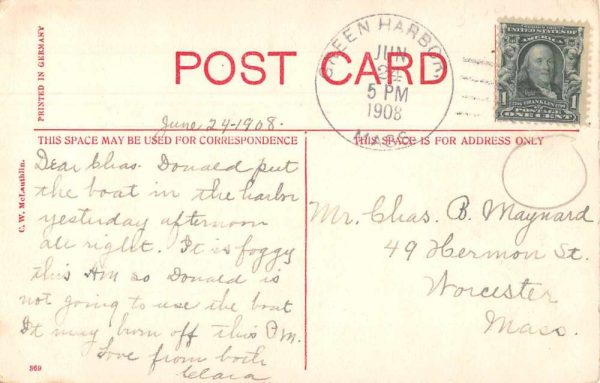 PRINTED IN GERMANY
POST CARD
GREEN HARBOR
JUN
24
5 PM
1908
MASS.
UNITED STATES OF AMERICA
1 FRANKLIN 1
POSTAGE
ONE CENT
June 24-1908.
THIS SPACE MAY BE USED FOR CORRESPONDENCE
THIS SPACE IS FOR ADDRESS ONLY
C. W. McLauthlin.
Dear Chas. Donald put
the boat in the harbor
yesterday afternoon
all right. It is foggy
this AM so Donald is
not going to use the boat
It may burn off this P.M.
Love from both
Clara
Mr. Chas. B. Maynard
49 Hermon St.
Worcester
Mass.
869